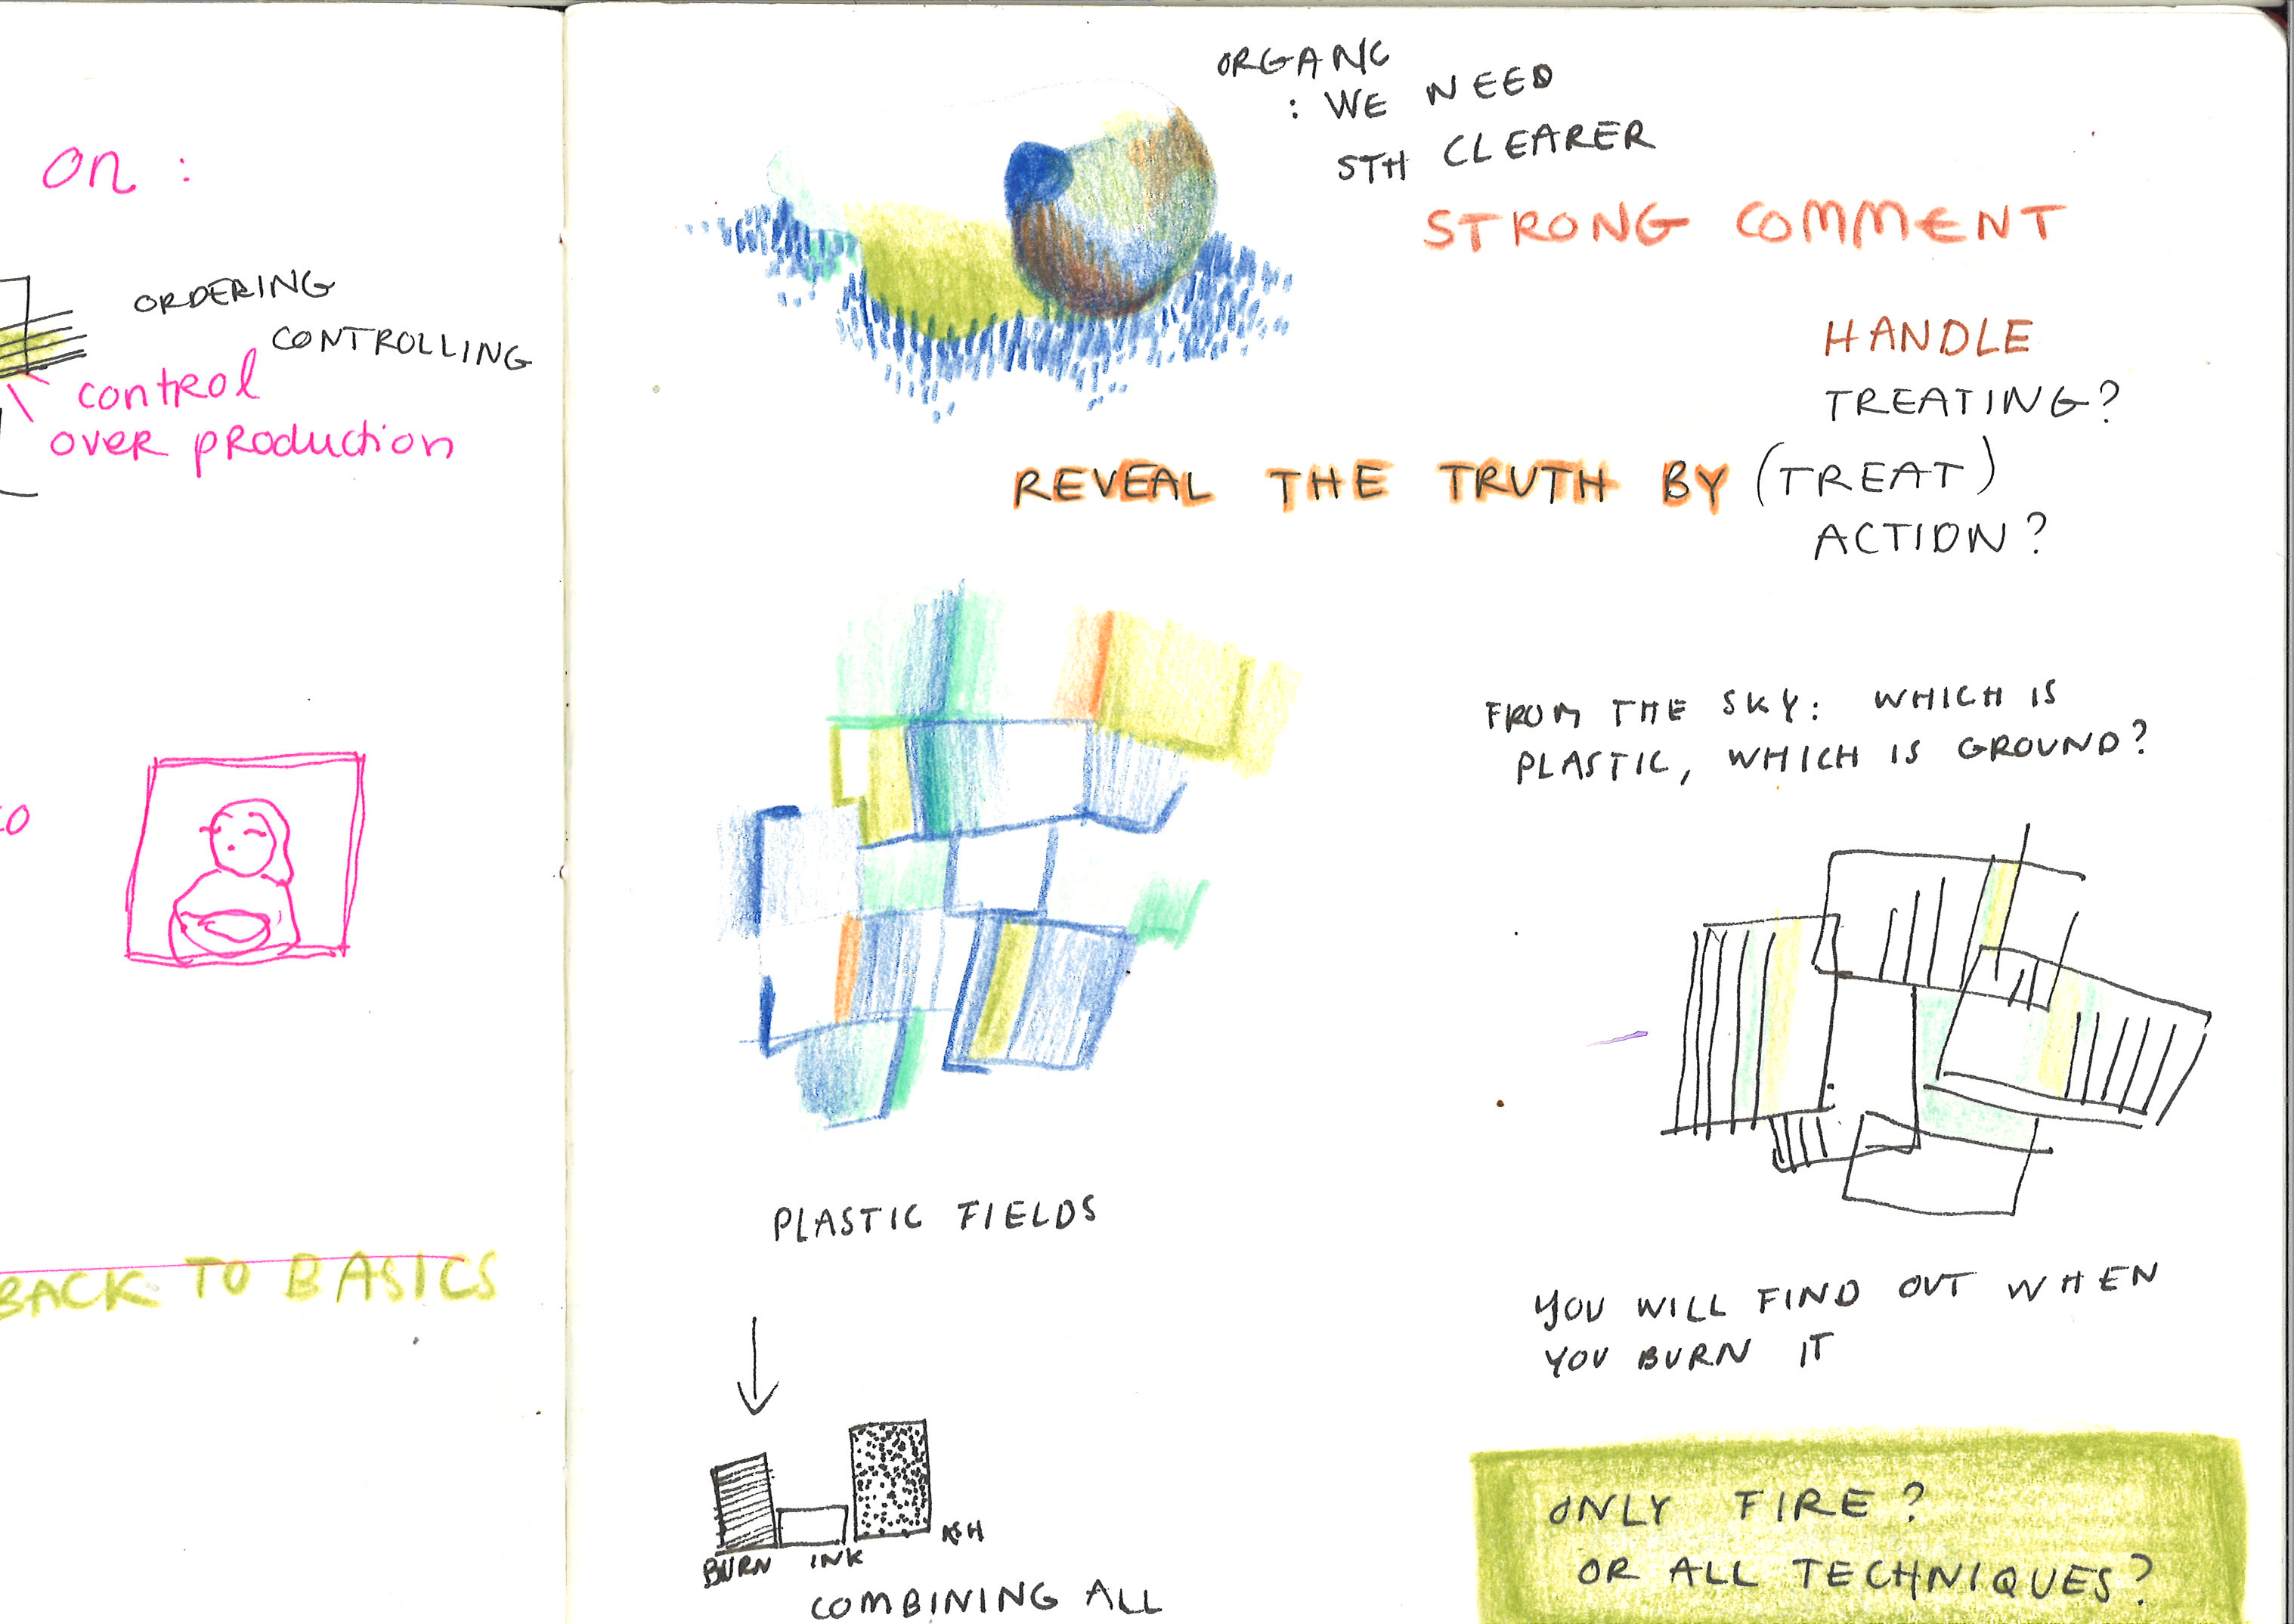 on :
ORDERING
CONTROLLING
control
over production
BACK TO BASICS
ORGANC
: WE NEED
STH CLEARER
STRONG COMMENT
HANDLE
TREATING?
REVEAL THE TRUTH BY (TREAT)
ACTION?
FROM THE SKY: WHICH IS
PLASTIC, WHICH IS GROUND?
PLASTIC FIELDS
YOU WILL FIND OUT WHEN
YOU BURN IT
BURN INK ASH
COMBINING ALL
ONLY FIRE?
OR ALL TECHNIQUES?